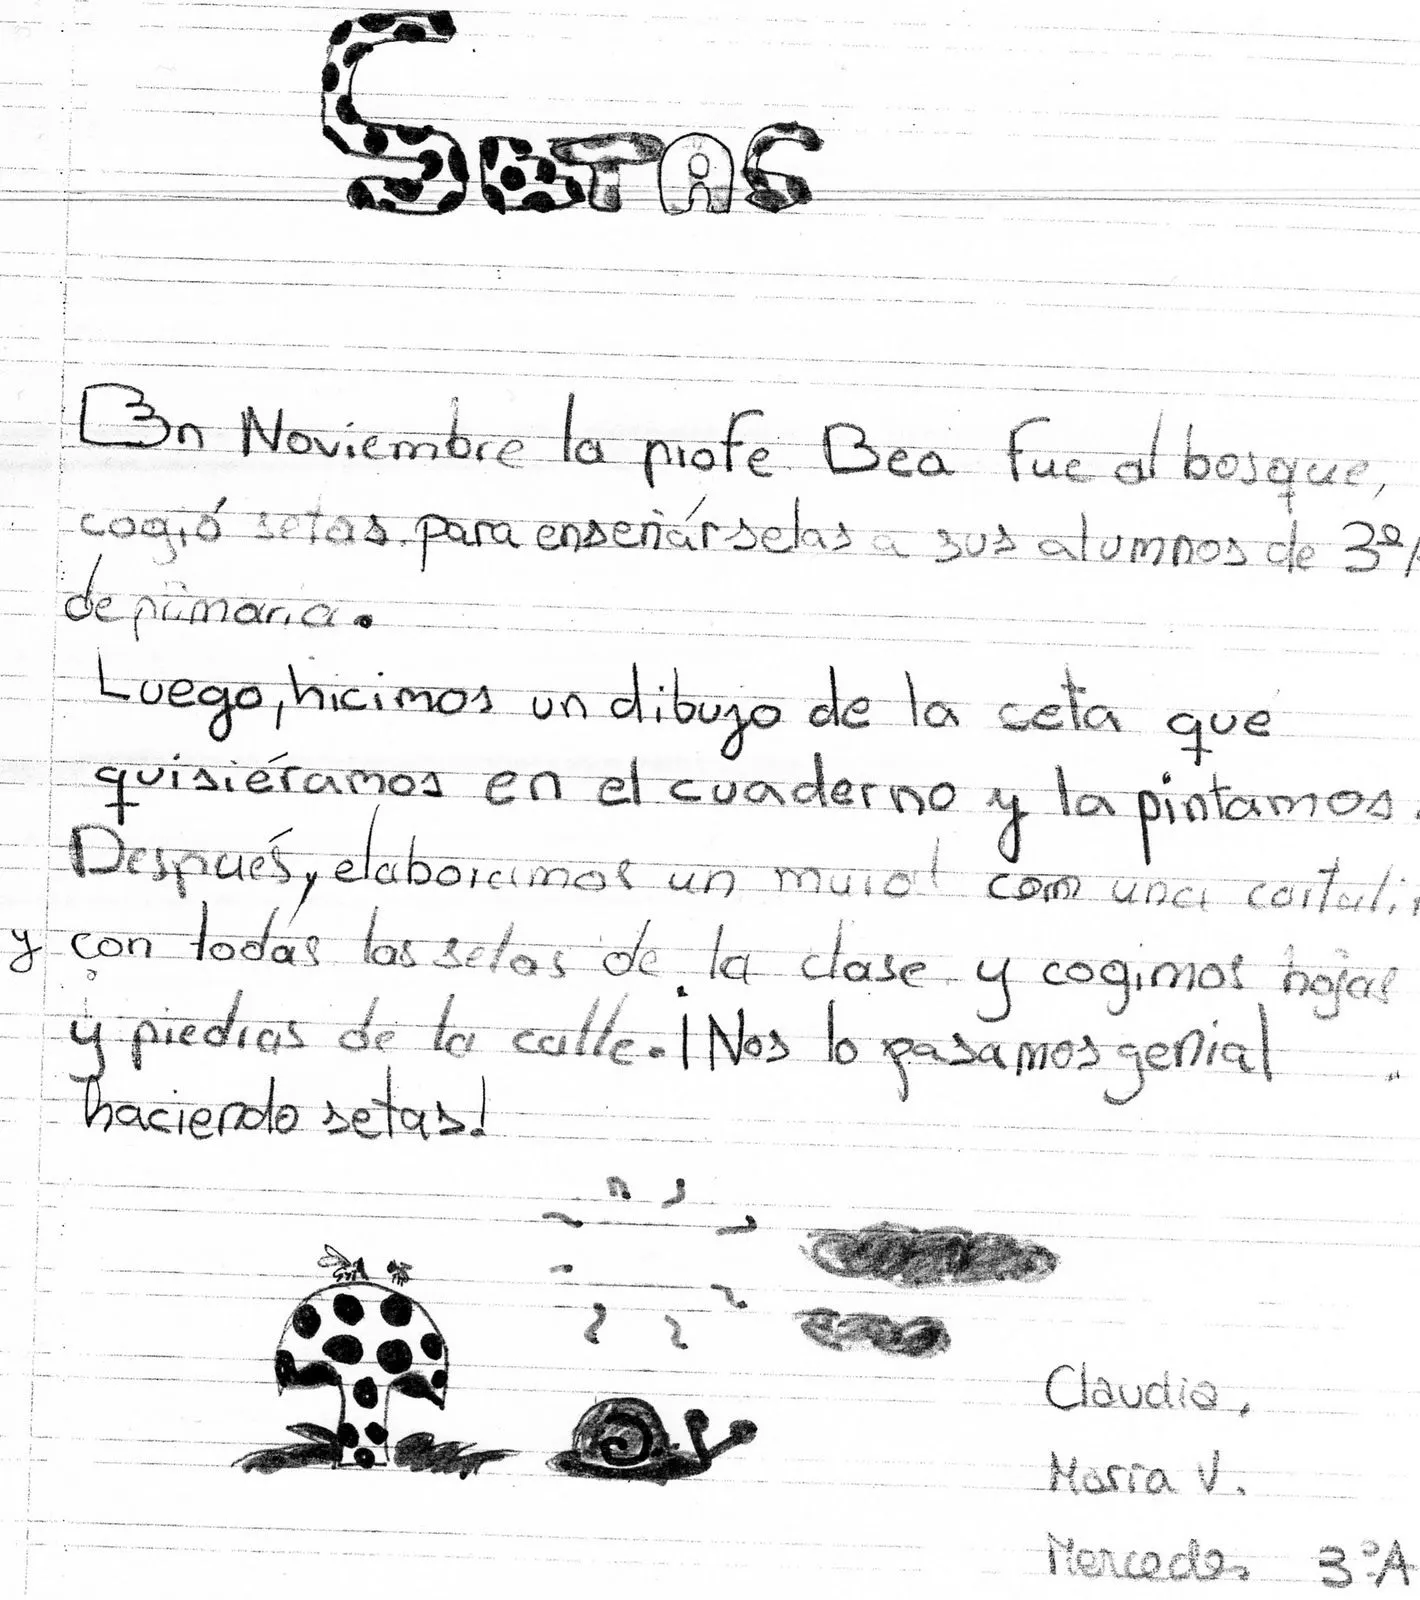 SETAS
En Noviembre la profe Bea fue al bosque,
cogió setas para enseñárselas a sus alumnos de 3º
de primaria.
Luego, hicimos un dibujo de la ceta que
quisiéramos en el cuaderno y la pintamos.
Después, elaboramos un mural com una
y con todas las setas de la clase y cogimos hojas
y piedras de la calle. ¡Nos lo pasamos genial
haciendo setas!
Claudia,
María V.
Mercedes 3ºA